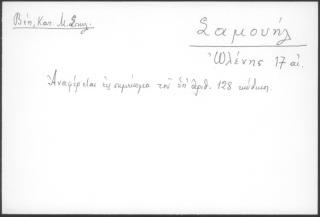 Βέη, Κατ. Μ. Σπηλ.
Σαμουήλ
Ὠλένης 17 αἰ.
Ἀναφέρεται εἰς σημείωμα τοῦ ὑπ' ἀριθ. 128 κώδικος.